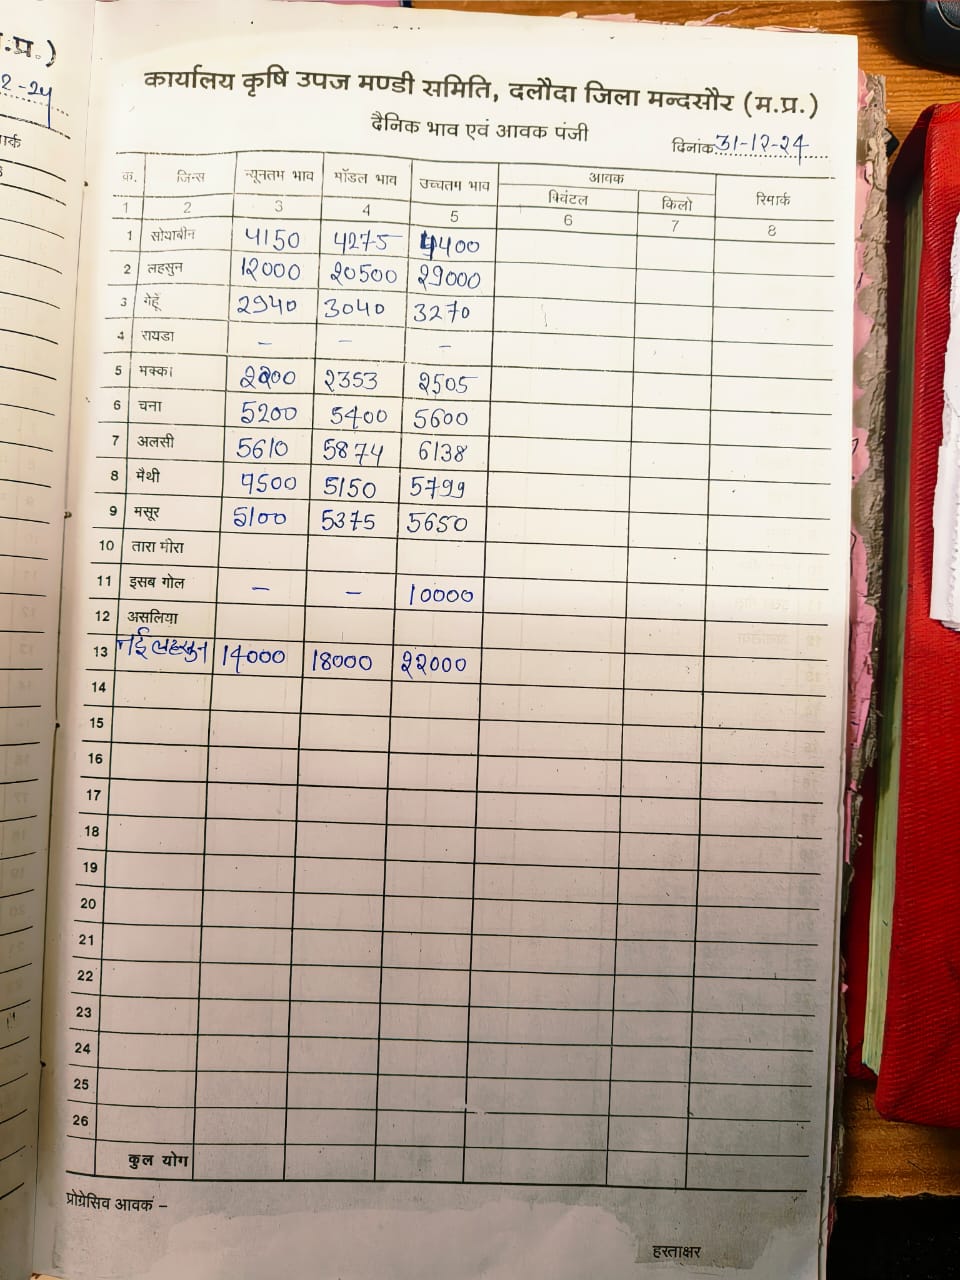 .प्र.)
2-24
मार्क
कार्यालय कृषि उपज मण्डी समिति, दलौदा जिला मन्दसौर (म.प्र.)
दैनिक भाव एवं आवक पंजी
दिनांक 31-12-24
क्र. जिन्स न्यूनतम भाव मॉडल भाव उच्चतम भाव आवक रिमार्क
क्विंटल किलो
1 2 3 4 5 6 7 8
1 सोयाबीन 4150 4275 4400
2 लहसुन 12000 20500 29000
3 गेहूँ 2940 3040 3270
4 रायडा - - -
5 मक्का 2200 2353 2505
6 चना 5200 5400 5600
7 अलसी 5610 5874 6138
8 मैथी 4500 5150 5799
9 मसूर 5100 5375 5650
10 तारा मीरा
11 इसब गोल - - 10000
12 असलिया
13 नई लहसुन 14000 18000 22000
14
15
16
17
18
19
20
21
22
23
24
25
26
कुल योग
प्रोग्रेसिव आवक -
हस्ताक्षर